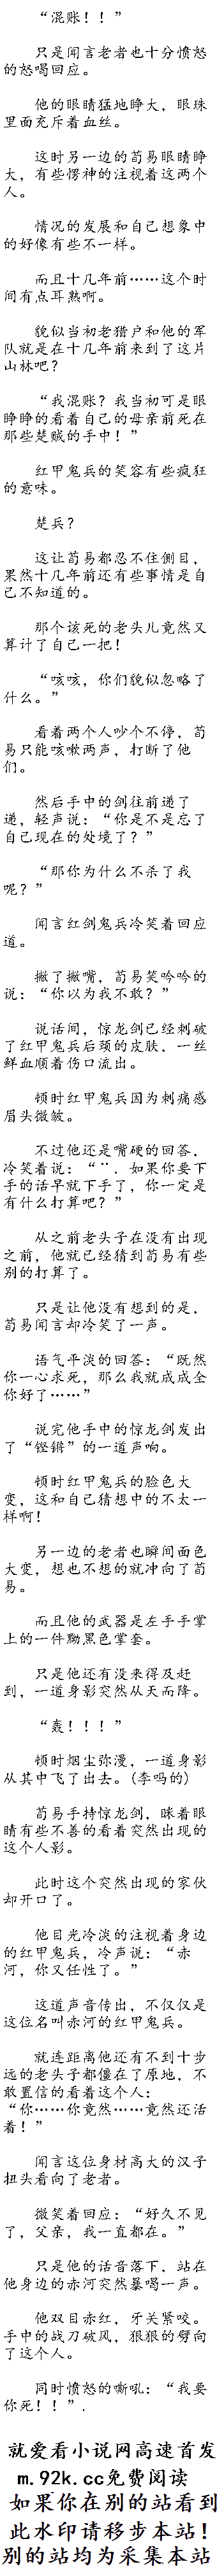 “混账！！”
只是闻言老者也十分愤怒
的怒喝回应。
他的眼睛猛地睁大，眼珠
里面充斥着血丝。
这时另一边的荀易眼睛睁
大，有些愣神的注视着这两个
人。
情况的发展和自己想象中
的好像有些不一样。
而且十几年前……这个时
间有点耳熟啊。
貌似当初老猎户和他的军
队就是在十几年前来到了这片
山林吧？
“我混账？我当初可是眼
睁睁的看着自己的母亲前死在
那些楚贼的手中！”
红甲鬼兵的笑容有些疯狂
的意味。
楚兵？
这让荀易都忍不住侧目，
果然十几年前还有些事情是自
己不知道的。
那个该死的老头儿竟然又
算计了自己一把！
“咳咳，你们貌似忽略了
什么。”
看着两个人吵个不停，荀
易只能咳嗽两声，打断了他
们。
然后手中的剑往前递了
递，轻声说：“你是不是忘了
自己现在的处境了？”
“那你为什么不杀了我
呢？”
闻言红剑鬼兵冷笑着回应
道。
撇了撇嘴，荀易笑吟吟的
说：“你以为我不敢？”
说话间，惊龙剑已经刺破
了红甲鬼兵后颈的皮肤，一丝
鲜血顺着伤口流出。
顿时红甲鬼兵因为刺痛感
眉头微皱。
不过他还是嘴硬的回答．
冷笑着说：“¨．如果你要下
手的话早就下手了，你一定是
有什么打算吧？”
从之前老头子在没有出现
之前，他就已经猜到荀易有些
别的打算了。
只是让他没有想到的是．
荀易闻言却冷笑了一声。
语气平淡的回答：“既然
你一心求死，那么我就成成全
你好了……”
说完他手中的惊龙剑发出
了“铿锵”的一道声响。
顿时红甲鬼兵的脸色大
变，这和自己猜想中的不太一
样啊！
另一边的老者也瞬间面色
大变，想也不想的就冲向了荀
易。
而且他的武器是左手手掌
上的一件黝黑色掌套。
只是他还有没来得及赶
到，一道身影突然从天而降。
“轰！！！”
顿时烟尘弥漫，一道身影
从其中飞了出去。(李吗的)
荀易手持惊龙剑，眯着眼
睛有些不善的看着突然出现的
这个人影。
此时这个突然出现的家伙
却开口了。
他目光冷淡的注视着身边
的红甲鬼兵，冷声说：“赤
河，你又任性了。”
这道声音传出，不仅仅是
这位名叫赤河的红甲鬼兵。
就连距离他还有不到十步
远的老头子都僵在了原地，不
敢置信的看着这个人：
“你……你竟然……竟然还活
着！”
闻言这位身材高大的汉子
扭头看向了老者。
微笑着回应：“好久不见
了，父亲，我一直都在。”
只是他的话音落下，站在
他身边的赤河突然暴喝一声。
他双目赤红，牙关紧咬。
手中的战刀破风，狠狠的劈向
了这个人。
同时愤怒的嘶吼：“我要
你死！！”．
就爱看小说网高速首发
m.92k.cc免费阅读
如果你在别的站看到
此水印请移步本站！
别的站均为采集本站